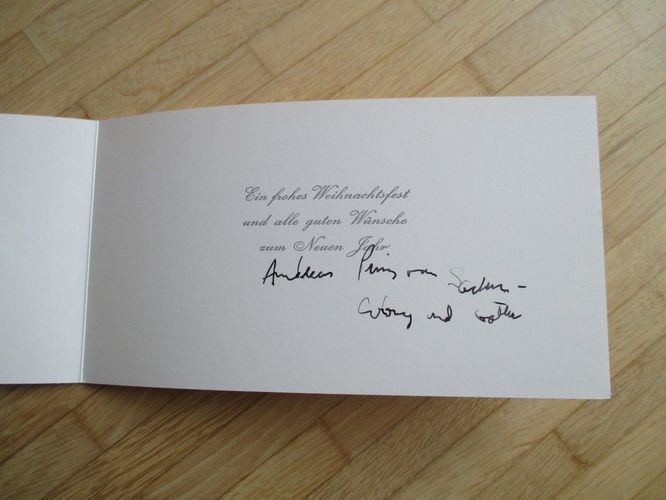 Ein frohes Weihnachtsfest
und alle guten Wünsche
zum Neuen Jahr
Andreas Prinz von Sachsen-
Coburg und Gotha